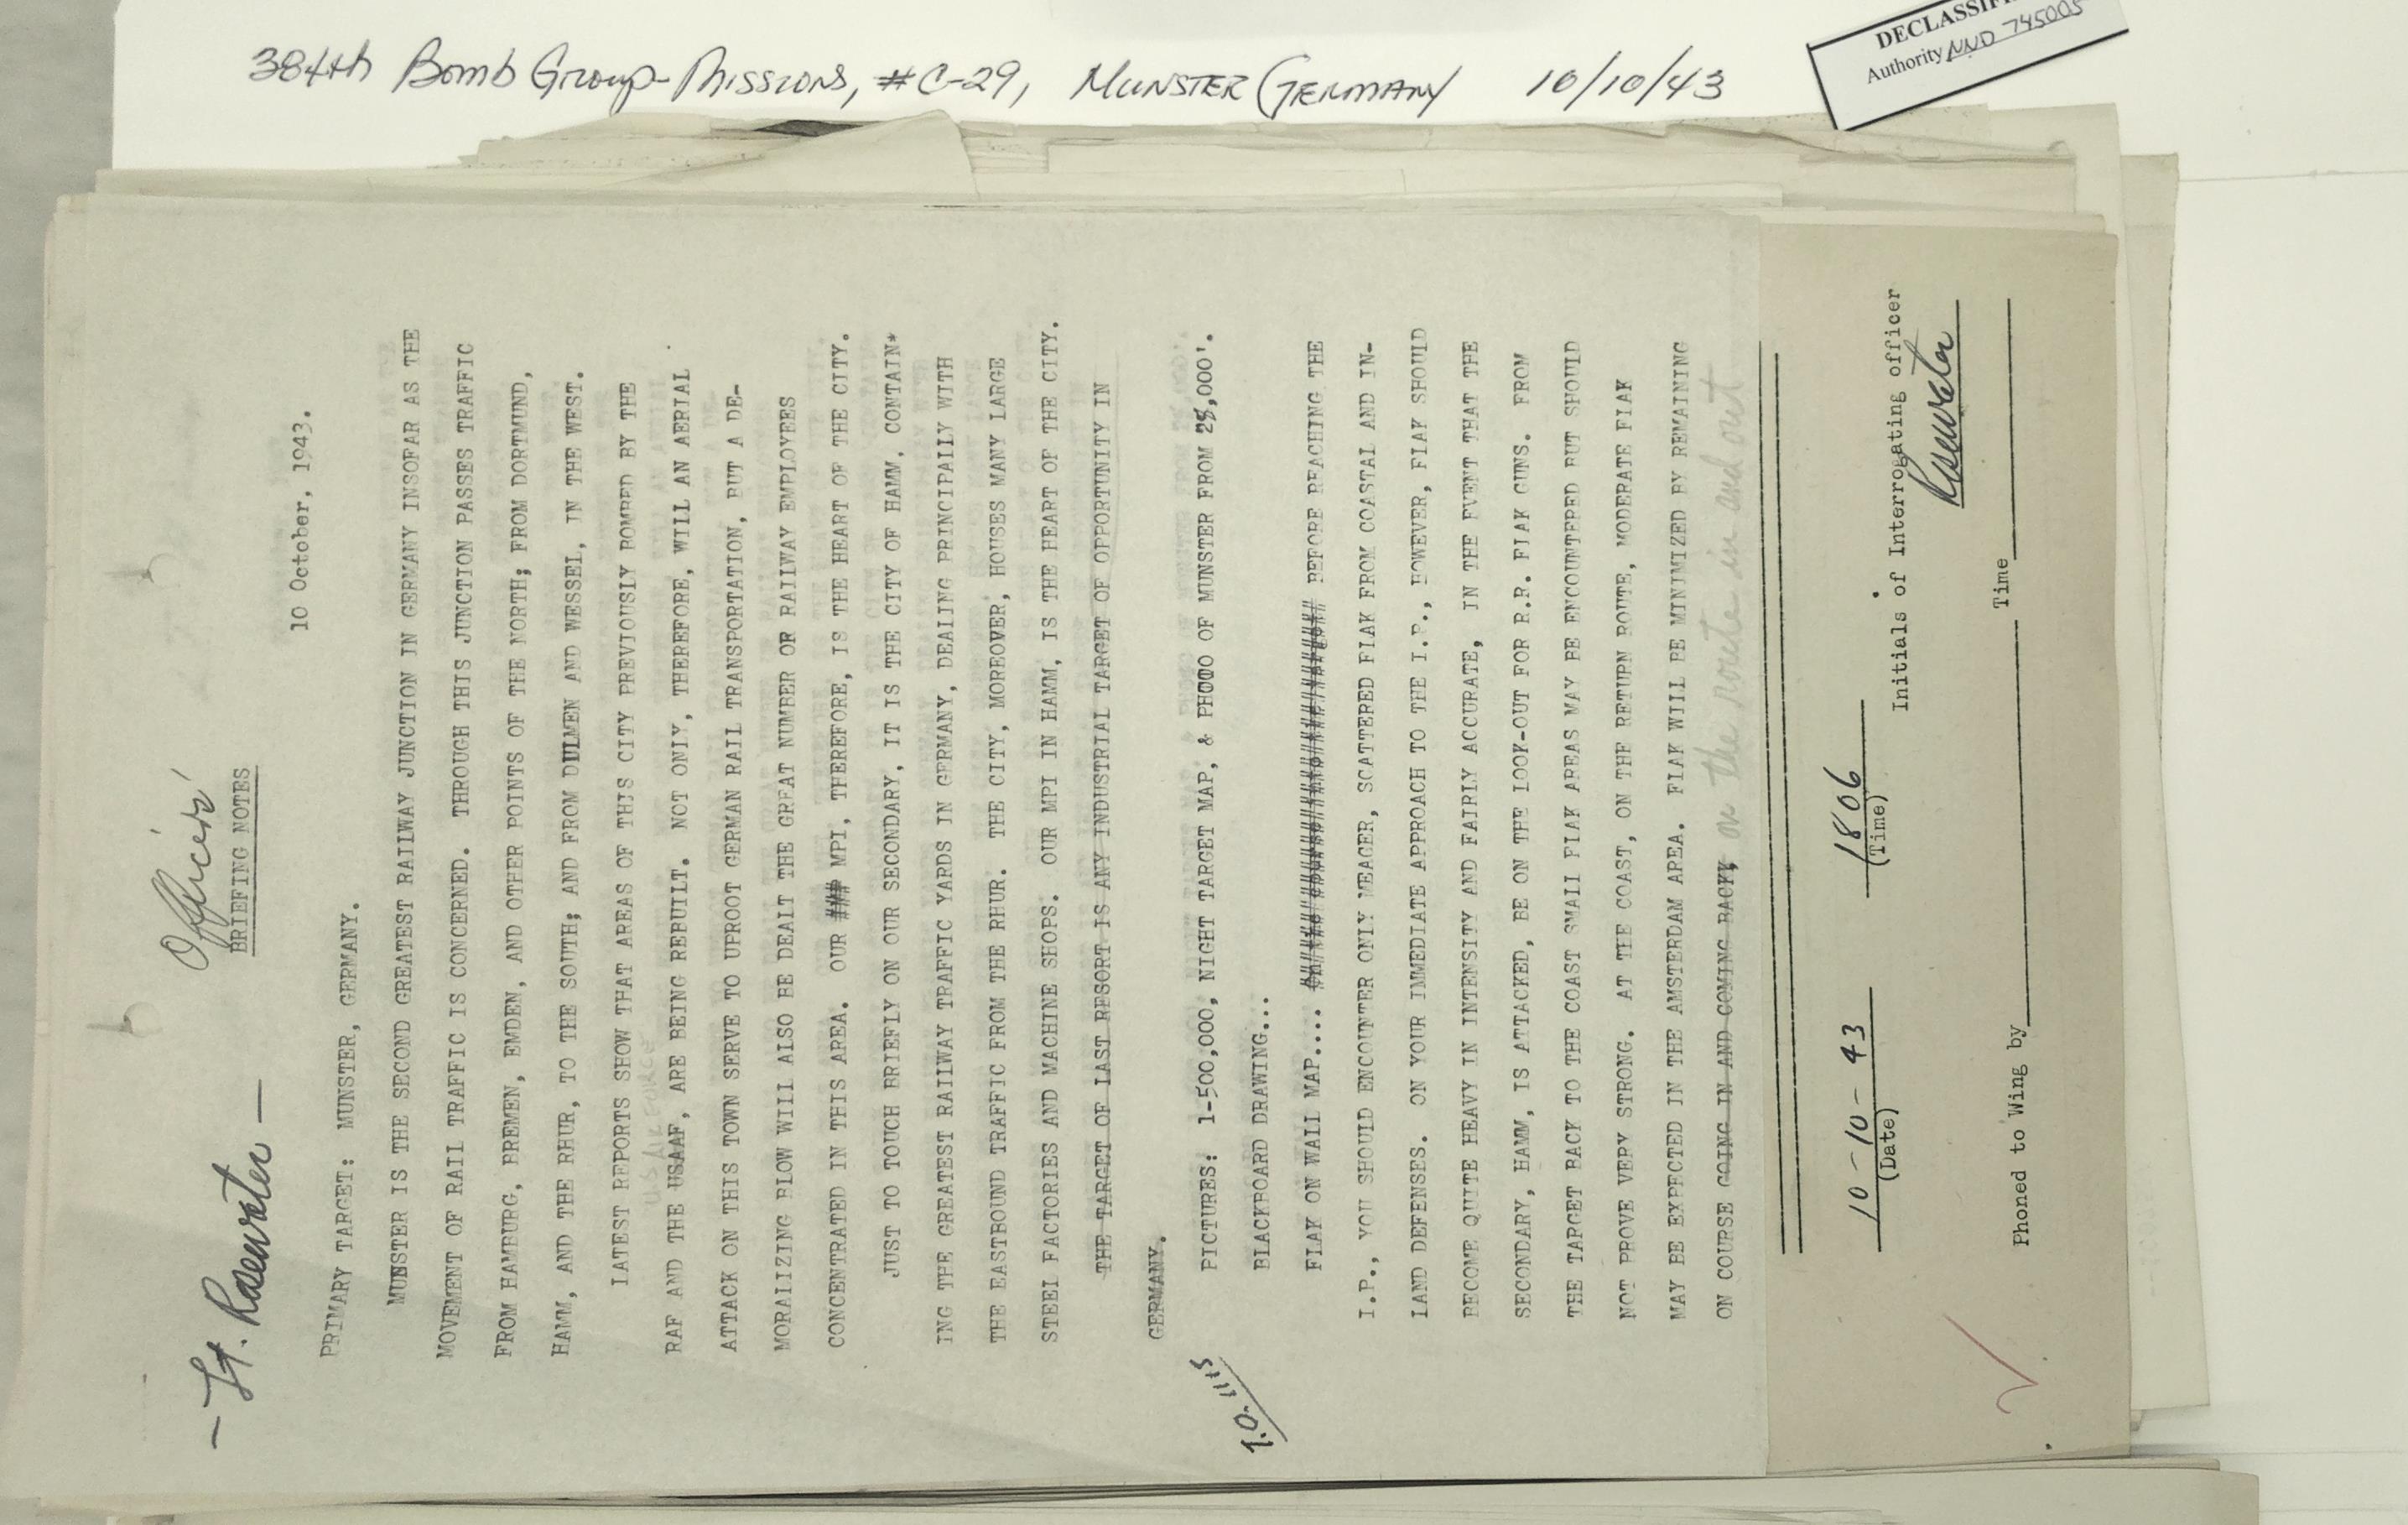 384th Bomb Group-Missions, #C-29, MUNSTER GERMANY 10/10/43
DECLASSIFI
Authority NND 745005
- Lt. Rosewater -
Officers'
BRIEFING NOTES
10 October, 1943.
PRIMARY TARGET: MUNSTER, GERMANY.
MUNSTER IS THE SECOND GREATEST RAILWAY JUNCTION IN GERMANY INSOFAR AS THE
MOVEMENT OF RAIL TRAFFIC IS CONCERNED. THROUGH THIS JUNCTION PASSES TRAFFIC
FROM HAMBURG, BREMEN, EMDEN, AND OTHER POINTS OF THE NORTH; FROM DORTMUND,
HAMM, AND THE RHUR, TO THE SOUTH; AND FROM DULMEN AND WESSEL, IN THE WEST.
LATEST REPORTS SHOW THAT AREAS OF THIS CITY PREVIOUSLY BOMBED BY THE
U.S. AIR FORCE
RAF AND THE USAAF, ARE BEING REBUILT. NOT ONLY, THEREFORE, WILL AN AERIAL
ATTACK ON THIS TOWN SERVE TO UPROOT GERMAN RAIL TRANSPORTATION, BUT A DE-
MORALIZING BLOW WILL ALSO BE DEALT THE GREAT NUMBER OF RAILWAY EMPLOYEES
CONCENTRATED IN THIS AREA. OUR ### MPI, THEREFORE, IS THE HEART OF THE CITY.
JUST TO TOUCH BRIEFLY ON OUR SECONDARY, IT IS THE CITY OF HAMM, CONTAIN*
ING THE GREATEST RAILWAY TRAFFIC YARDS IN GERMANY, DEALING PRINCIPALLY WITH
THE EASTBOUND TRAFFIC FROM THE RHUR. THE CITY, MOREOVER, HOUSES MANY LARGE
STEEL FACTORIES AND MACHINE SHOPS. OUR MPI IN HAMM, IS THE HEART OF THE CITY.
THE TARGET OF LAST RESORT IS ANY INDUSTRIAL TARGET OF OPPORTUNITY IN
GERMANY.
PICTURES: 1-500,000, NIGHT TARGET MAP, & PHOTO OF MUNSTER FROM 25,000'.
BLACKBOARD DRAWING...
FLAK ON WALL MAP.... BEFORE REACHING THE
I.P., YOU SHOULD ENCOUNTER ONLY MEAGER, SCATTERED FLAK FROM COASTAL AND IN-
LAND DEFENSES. ON YOUR IMMEDIATE APPROACH TO THE I.P., HOWEVER, FLAK SHOULD
BECOME QUITE HEAVY IN INTENSITY AND FAIRLY ACCURATE, IN THE EVENT THAT THE
SECONDARY, HAMM, IS ATTACKED, BE ON THE LOOK-OUT FOR R.R. FLAK GUNS. FROM
THE TARGET BACK TO THE COAST SMALL FLAK AREAS MAY BE ENCOUNTERED BUT SHOULD
NOT PROVE VERY STRONG. AT THE COAST, ON THE RETURN ROUTE, MODERATE FLAK
MAY BE EXPECTED IN THE AMSTERDAM AREA. FLAK WILL BE MINIMIZED BY REMAINING
ON COURSE GOING IN AND COMING BACK, on the route in and out
10-10-43
(Date)
1806
(Time)
Initials of Interrogating officer
Rosewater
Phoned to Wing by Time